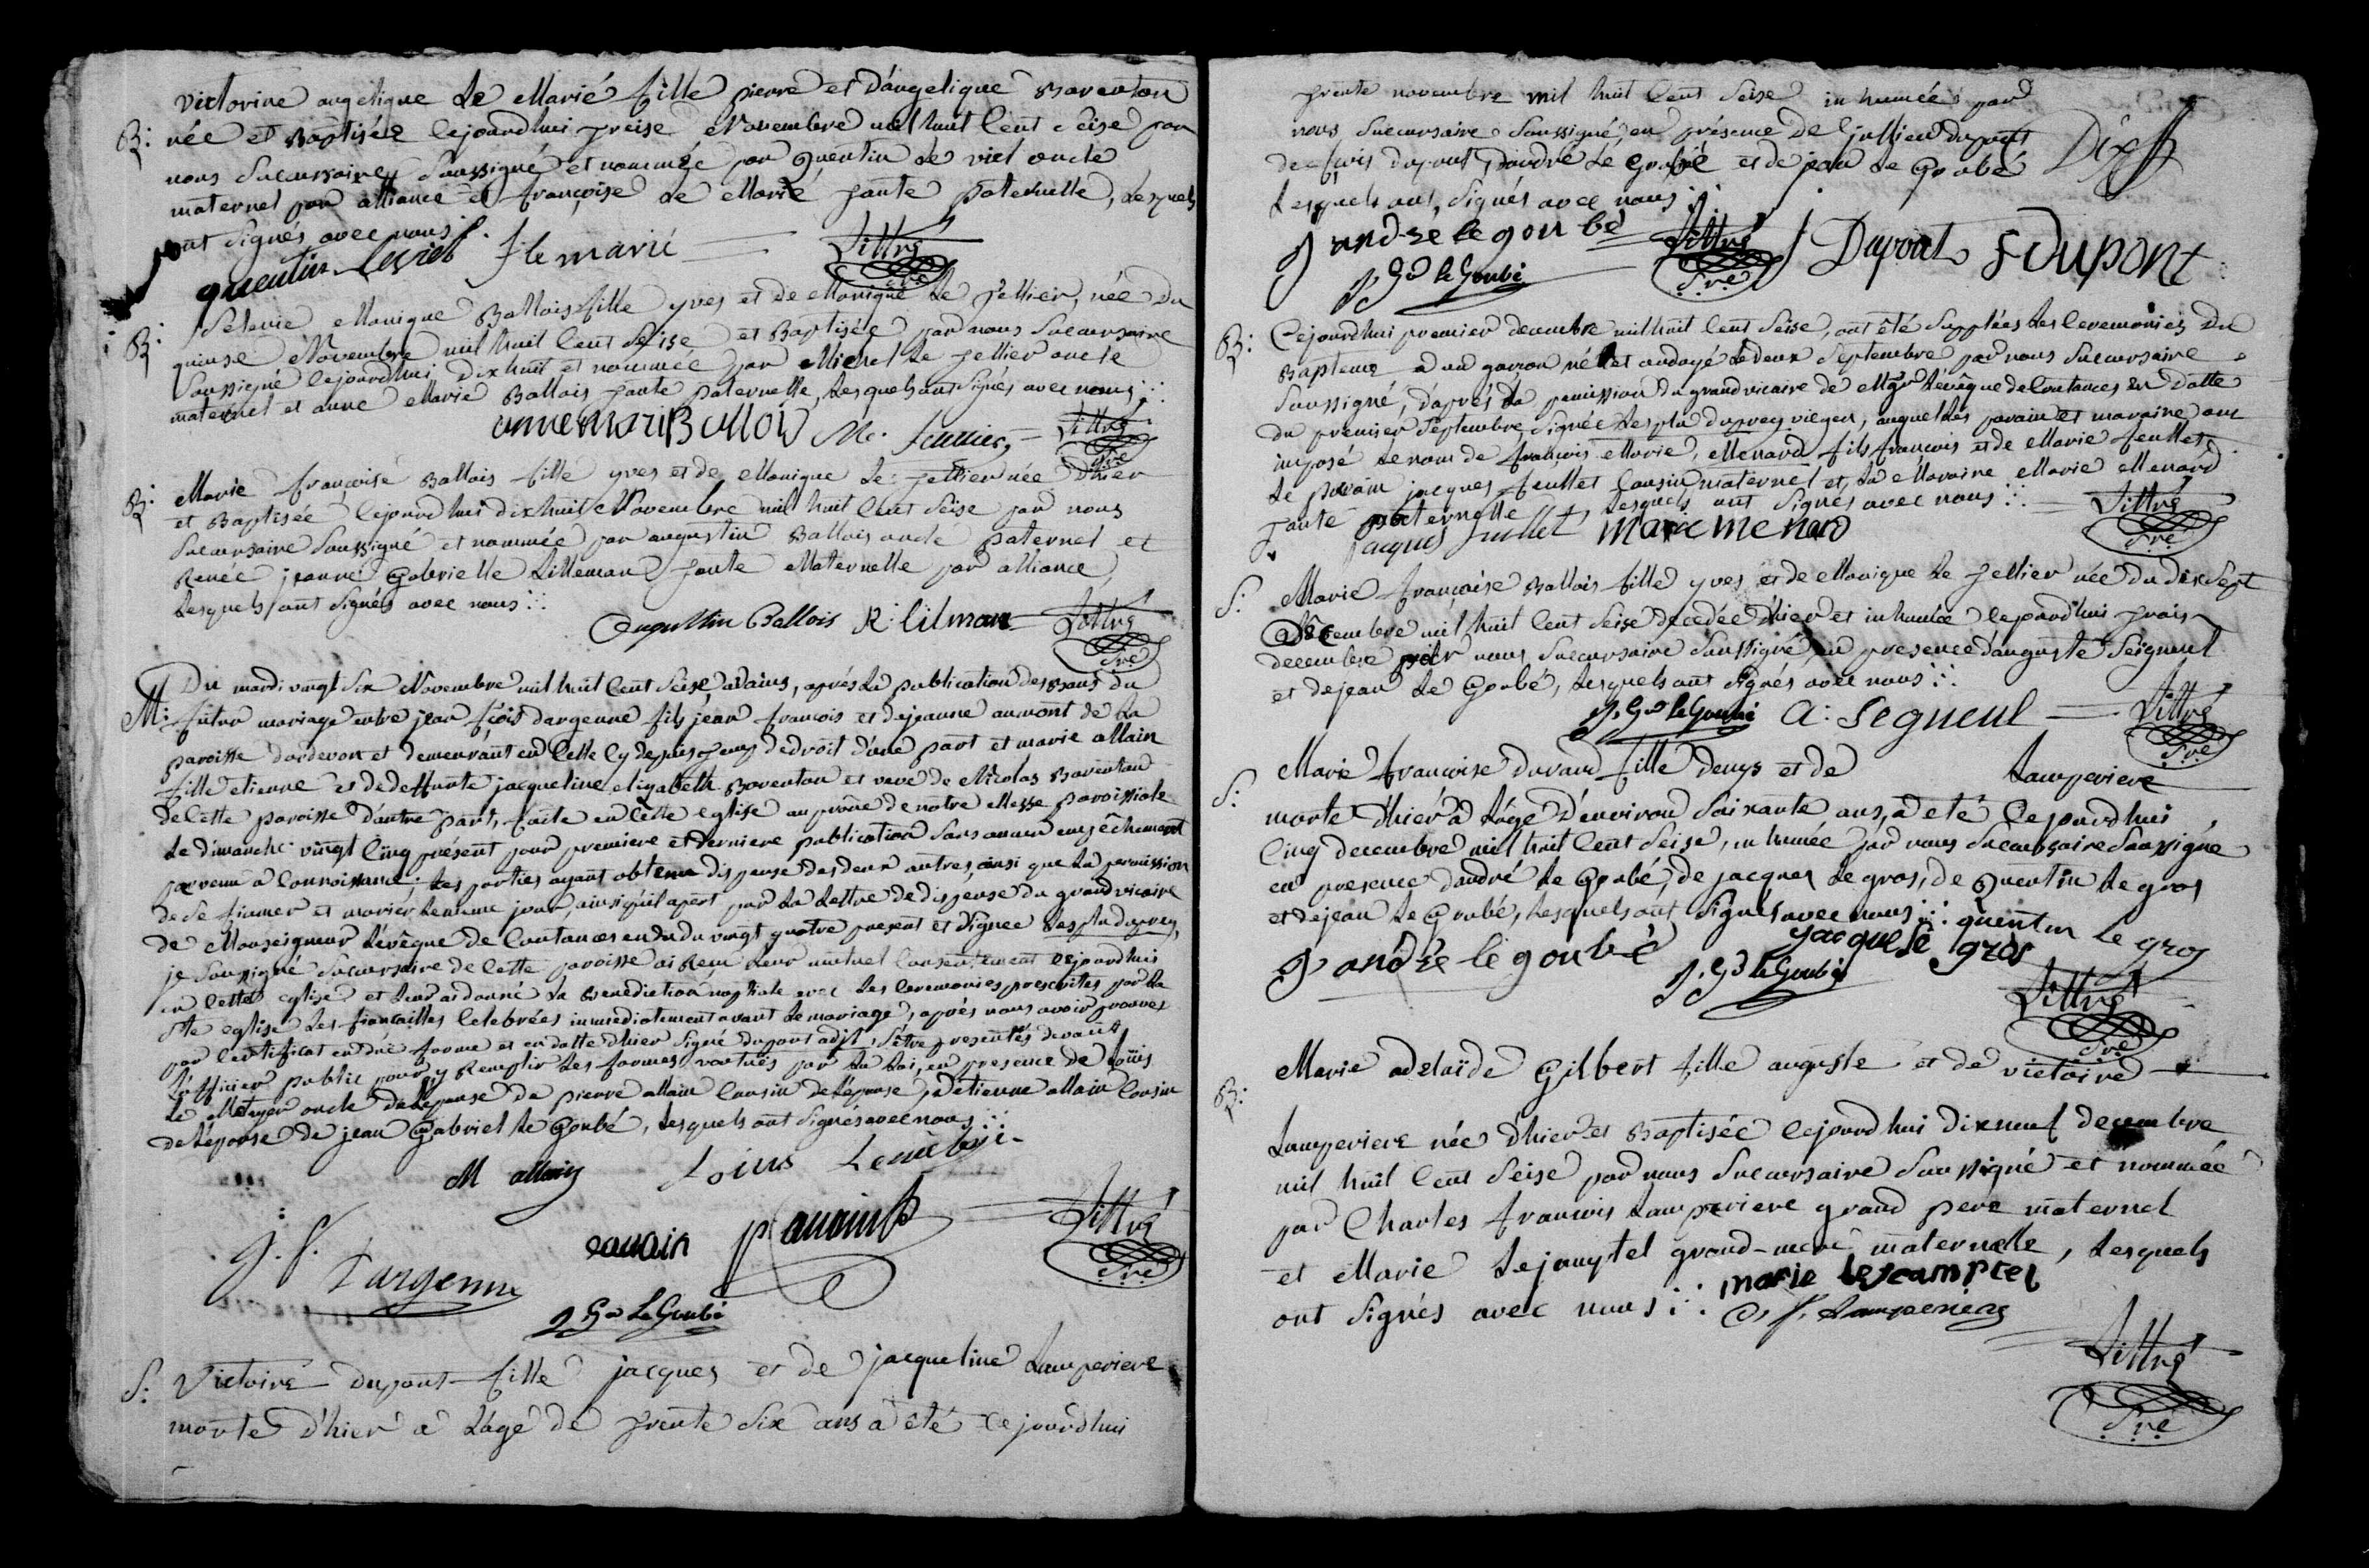 victorine angelique Le Marié fille pierre et d'angelique Baventon
B: née et Baptisée cejourdhui treise Novembre mil huit cent seise par
nous Sucursaire Soussigné et nommée par quentin Le viel oncle
maternel par alliance et françoise Le Marié tante paternelle, Lesquels
ont signés avec nous
quentin Leviel f le marié Littré
Sre
B: monique Ballois fille yves et de Monique Le tellier, née du
quinse Novembre mil huit cent seise et Baptisée par nous Sucursaire
Soussigné cejourdhui dix huit et nommée par Michel Le tellier oncle
maternel et anne Marie Ballois tante paternelle, Lesquels ont signés avec nous
anne mari Ballois M. Littré
Sre
B: Marie françoise Ballois fille yves et de Monique Le tellier née d'hier
et Baptisée cejourdhui dix huit Novembre mil huit cent seise par nous
Sucursaire Soussigné et nommée par augustin Ballois oncle paternel et
Renée jeanne Gabrielle Lilleman tante Maternelle par alliance,
Lesquels ont signés avec nous
augusttin Ballois R: lilman Littré
Sre
Du mardi vingt six Novembre mil huit cent seise, après La publication des Bans du
M: futur mariage entre jean fçois dargenne fils jean françois et de jeanne aumont de La
paroisse dardevon et demeurant en Cette Cy depuis temps de droit d'une part et marie allain
fille etienne et de deffunte jacqueline elizabeth Baventon et veve de Nicolas Baventon
de Cette paroisse d'autre part, faite en Cette eglise au prône de notre Messe paroissiale
Le dimanche vingt Cinq présent pour premiere et derniere publication Sans aucun empêchement
parvenu a Connoissance; Les parties ayant obtenu dispense des deux autres, ainsi que La permission
de Se fiancer et marier Le même jour, ainsi qu'il apert par La Lettre de dispense du grand vicaire
de Monseigneur L'évêque de Coutances en du vingt quatre present et Signee
je Soussigné Sucursaire de Cette paroisse ai Reçu Leur mutuel Consentement cejourdhui
en Cette eglise et Leur ai donné La Benediction nuptiale avec Les Ceremonies prescrites par La
ste eglise Les fiançailles Celebrées immediatement avant Le mariage, après nous avoir prouvés
par Certificat en due forme et en datte d'hier signé dupont adjt, S'être presentés devant
L'officier public pour y Remplir Les formes voulues par La Loi, en presence de Louis
Le oncle de L'epouse de pierre allain Cousin de L'épouse, d'etienne allain Cousin
de L'épouse de jean Gabriel Le Goubé, Lesquels ont Signés avec nous
M allain Louis
J. f. Dargenne Littré
Sre
J Gel Le Goubé
S: Victoire dupont fille jacques et de jacqueline Lamperiere
morte d'hier a L'agé de trente Six ans a été cejourdhui
trente novembre mil huit Cent Seise inhumée par
nous Sucursaire Soussigné en présence de jullien dupont
de fçois dupont, d'andré Le Goubé et de jean Le Goubé
Lesquels ont Signés avec nous
andre le goubé Littré J Dupont F dupont
J Gel le Goubé Sre
B: Cejourdhui premier decembre mil huit Cent Seise, ont été Supplées Les Ceremonies du
Bapteme a un garçon né et ondoyé Le deux Septembre par nous Sucursaire
Soussigné, d'après La permission du grand vicaire de Mgr L'évêque de Coutances en datte
du premier Septembre, Signée, auquel Les parain et maraine ont
imposé Le nom de françois Marie, Menard fils françois et de Marie feuillet.
Le parain jacques feuillet Cousin maternel et La Maraine Marie Menard
tante paternelle Lesquels ont Signés avec nous Littré
jacques marie menard Sre
S: Marie françoise Ballois fille yves et de Monique Le tellier née du dix Sept
mil huit Cent Seise decedée d'hier et inhumée cejourdhui trois
decembre par nous Sucursaire Soussigné en presence d'auguste Seigneul
et de jean Le Goubé, Lesquels ont Signés avec nous
J. Gel le Goubé A: Segneul Littré
Sre
Marie françoise durand fille denys et de Lamperiere
S: morte d'hier à L'âge d'environ Soixante ans, a eté Cejourdhui
Cinq decembre mil huit Cent Seise, inhumée par nous Sucursaire Soussigné
en presence d'andré Le Goubé, de jacques Le gros, de Quentin Le gros
et de jean Le Goubé, Lesquels ont Signés avec nous quentin Le gros
andre le goubé J. Gel le Goubé jacque le gros
Littré
Sre
B: Marie adelaïde Gilbert fille auguste et de victoire
Lamperiere née d'hier et Baptisée cejourdhui dix neuf decembre
mil huit Cent Seise par nous Sucursaire Soussigné et nommée
par Charles françois Lamperiere grand pere maternel
et Marie Lejamptel grand-mere maternelle, Lesquels
ont Signés avec nous marie
C. f. Lamperiere
Littré
Sre